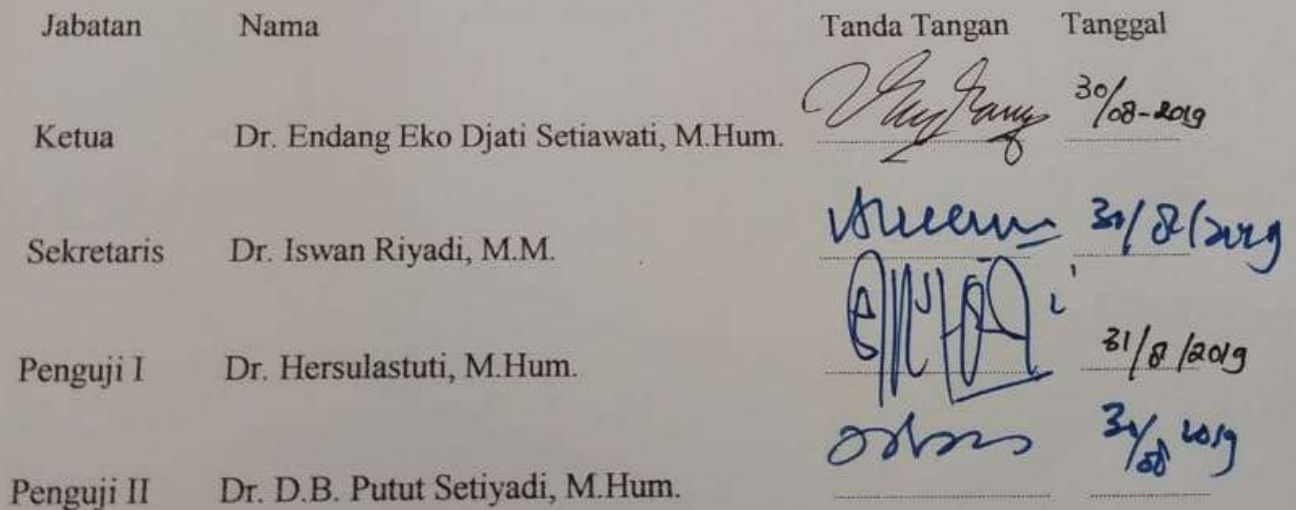 Jabatan Nama Tanda Tangan Tanggal
Ketua Dr. Endang Eko Djati Setiawati, M.Hum. 30/08-2019
Sekretaris Dr. Iswan Riyadi, M.M. 30/8/2019
Penguji I Dr. Hersulastuti, M.Hum. 31/8/2019
Penguji II Dr. D.B. Putut Setiyadi, M.Hum. 30/08 2019